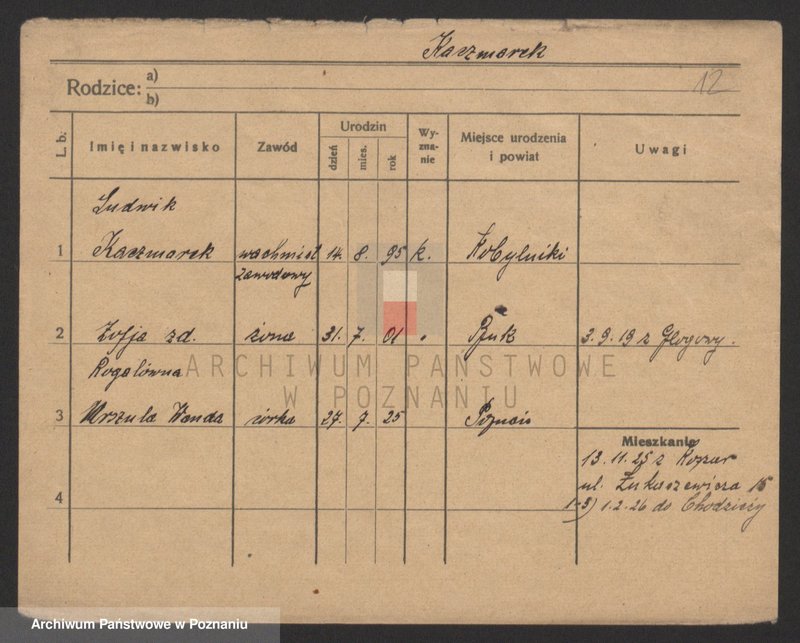 Kaczmarek
12
Rodzice: a)
b)
L. b. Imię i nazwisko Zawód Urodzin dzień mies. rok Wy-zna-nie Miejsce urodzenia i powiat Uwagi
Ludwik
1 Kaczmarek wachmist 14. 8. 95 k. Kobylniki
zawodowy
2 Zofja zd. żona 31. 7. 01 Buk 3.9.19 z Głogowy.
Rogalówna
3 Urszula Wanda córka 27. 7. 25 Poznań
Mieszkanie
13.11.25 z Koszar
ul. Łukaszewicza 15
4 1-3) 1.2.26 do Chodzieży
ARCHIWUM PAŃSTWOWE
W POZNANIU
Archiwum Państwowe w Poznaniu